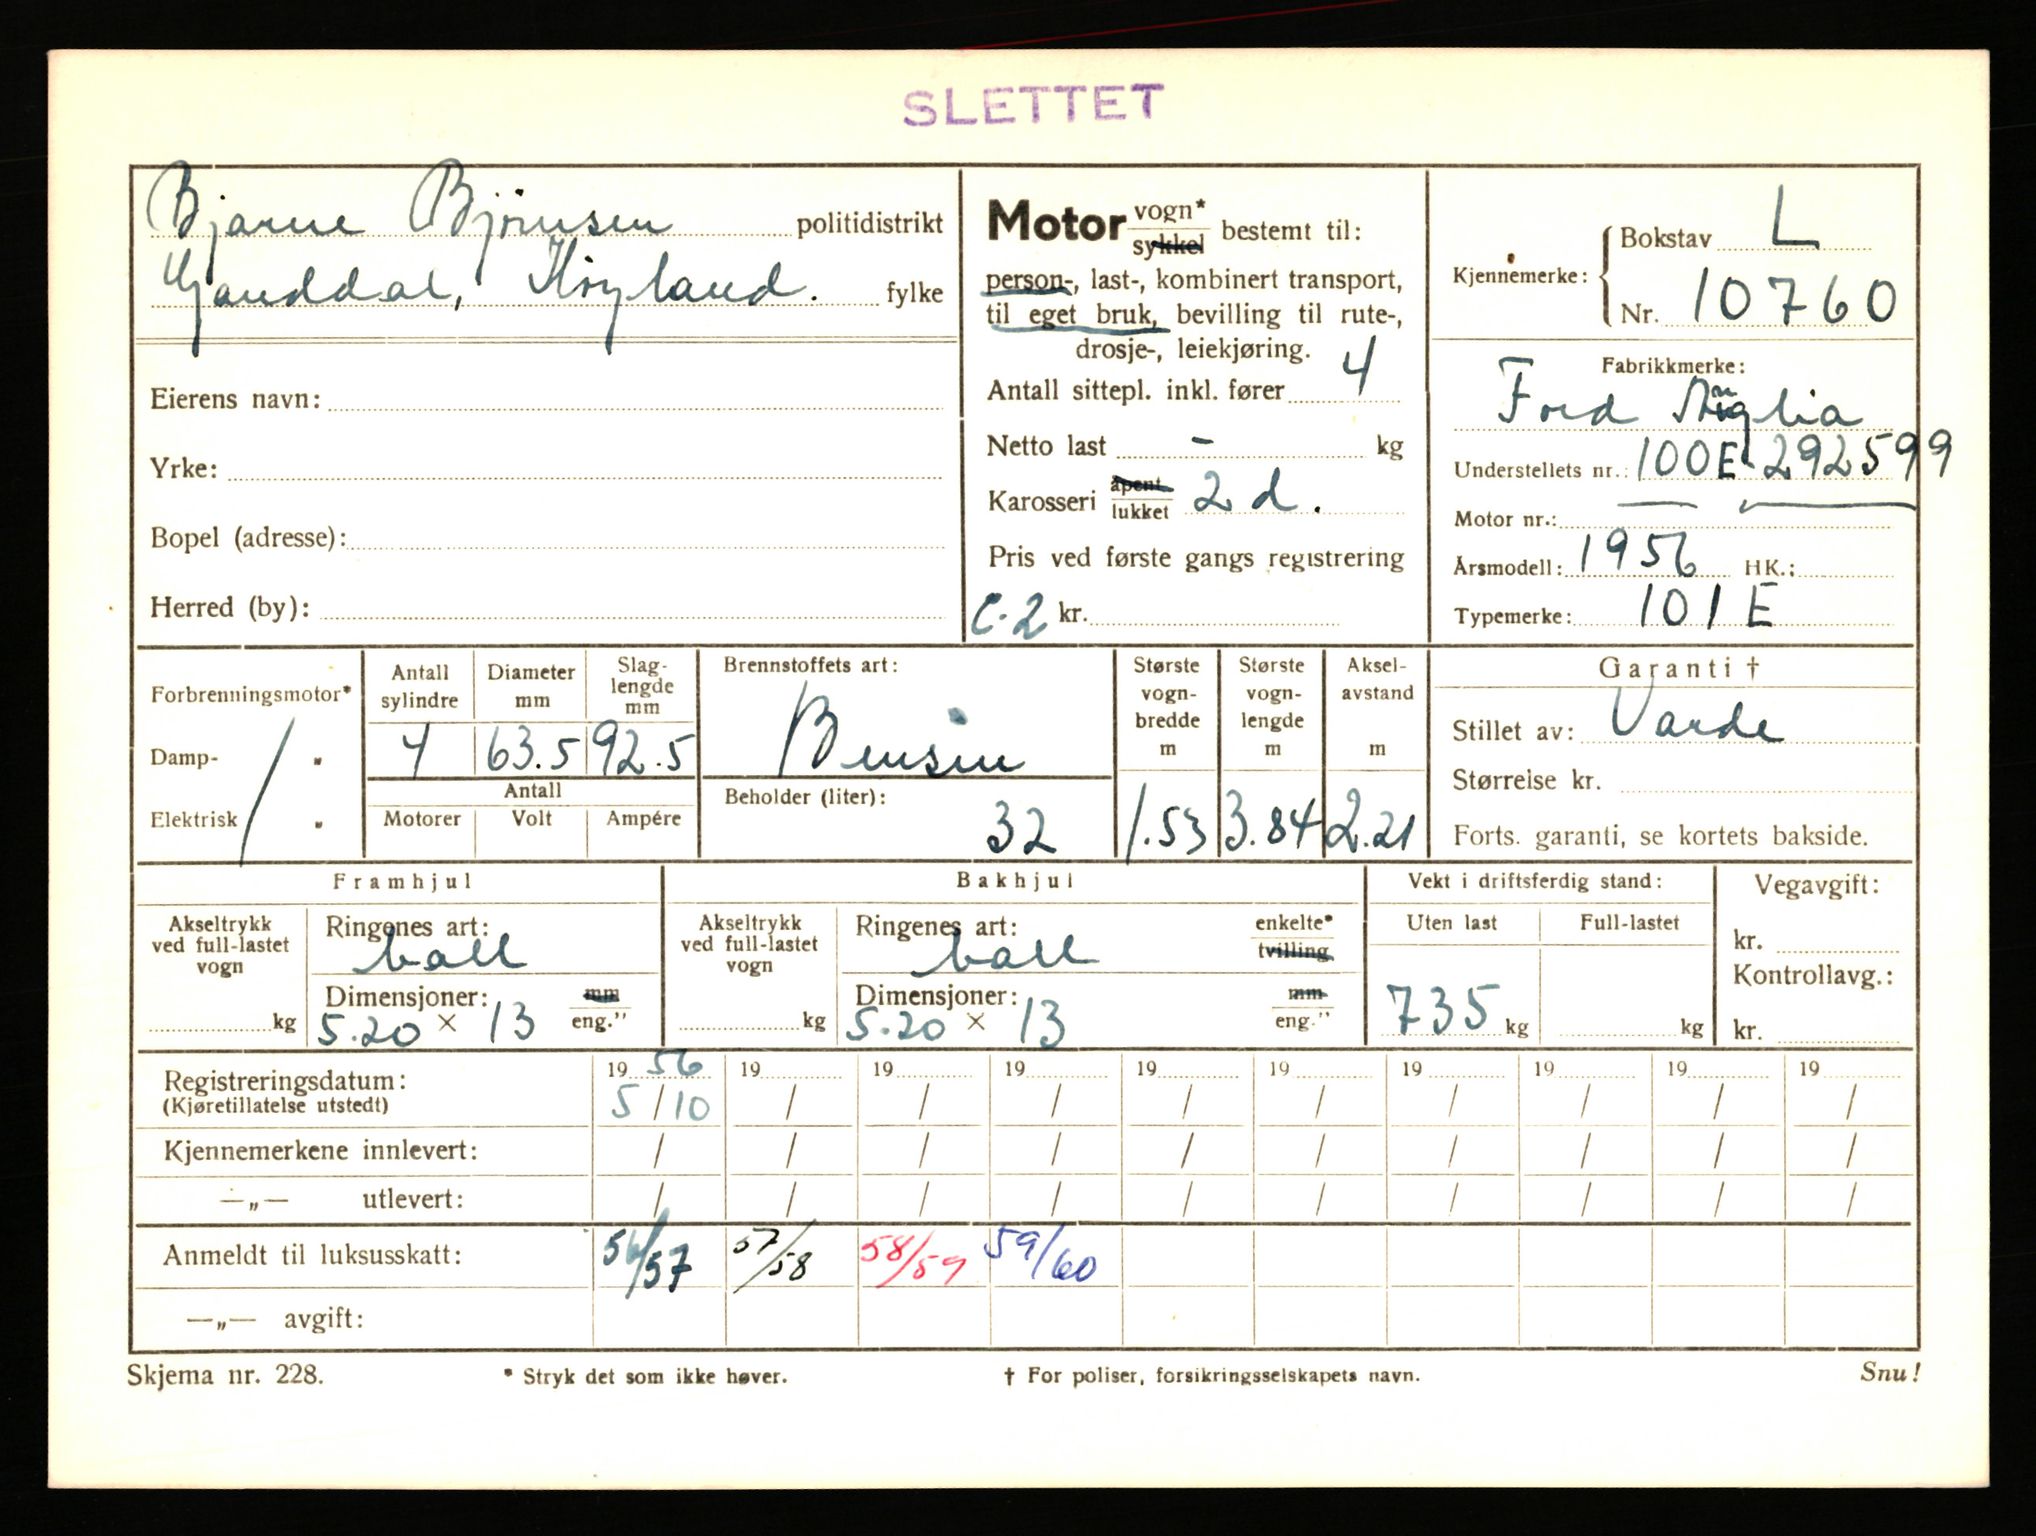 SLETTET
Bjarne Björnsen politidistrikt
Ganddal, Höyland. fylke
Eierens navn:
Yrke:
Bopel (adresse):
Herred (by):
Motor vogn* sykkel bestemt til:
person-, last-, kombinert transport,
til eget bruk, bevilling til rute-,
drosje-, leiekjøring.
Antall sittepl. inkl. fører 4
Netto last - kg
Karosseri åpent lukket 2 d.
Pris ved første gangs registrering
C-2 kr.
Kjennemerke: Bokstav L
Nr. 10760
Fabrikkmerke:
Ford Anglia
Understellets nr.: 100E-292599
Motor nr.:
Årsmodell: 1956 HK.:
Typemerke: 101E
Forbrenningsmotor*
Damp- "
Elektrisk "
Antall sylindre Diameter mm Slaglengde mm
4 63.5 92.5
Antall
Motorer Volt Ampére
Brennstoffets art:
Bensin
Beholder (liter):
32
Største vognbredde m Største vognlengde m Akselavstand m
1.53 3.84 2.21
Garanti †
Stillet av: Varde
Størrelse kr.
Forts. garanti, se kortets bakside.
Framhjul
Akseltrykk ved full-lastet vogn
kg
Ringenes art:
ball
Dimensjoner: mm
5.20 × 13 eng."
Bakhjul
Akseltrykk ved full-lastet vogn
kg
Ringenes art: enkelte*
ball tvilling
Dimensjoner: mm
5.20 × 13 eng."
Vekt i driftsferdig stand:
Uten last Full-lastet
735 kg kg
Vegavgift:
kr.
Kontrollavg.:
kr.
Registreringsdatum: 19 56 19 19 19 19 19 19 19 19 19
(Kjøretillatelse utstedt) 5/10 / / / / / / / / /
Kjennemerkene innlevert: / / / / / / / / / /
—„— utlevert: / / / / / / / / / /
Anmeldt til luksusskatt: 56/57 57/58 58/59 59/60
—„— avgift:
Skjema nr. 228. * Stryk det som ikke høver. † For poliser, forsikringsselskapets navn. Snu!